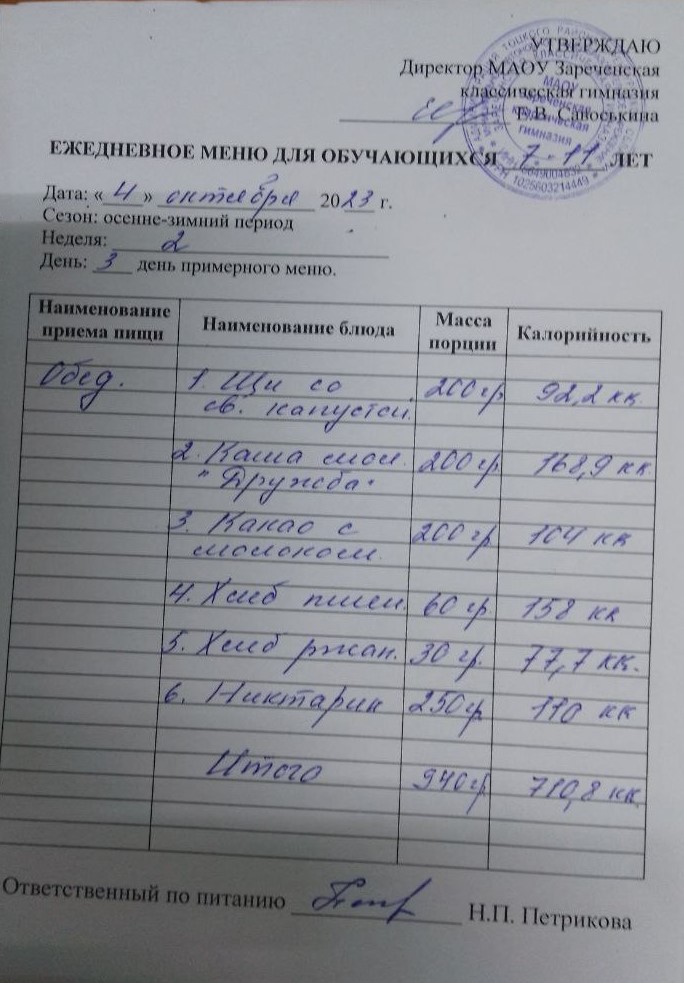 УТВЕРЖДАЮ
Директор МАОУ Зареченская
классическая гимназия
Т.В. Саноськина
МАОУ
Зареченская
классическая
гимназия
ЕЖЕДНЕВНОЕ МЕНЮ ДЛЯ ОБУЧАЮЩИХСЯ 7-11 ЛЕТ
Дата: «4» октября 2023 г.
Сезон: осенне-зимний период
Неделя: 2
День: 3 день примерного меню.
Наименование приема пищи Наименование блюда Масса порции Калорийность
Обед. 1. Щи со 200 гр 92,2 кк
св. капустой.
2. Каша мол. 200 гр 168,9 кк
"Дружба"
3. Какао с 200 гр 104 кк
молоком.
4. Хлеб пшен. 60 гр 158 кк
5. Хлеб ржан. 30 гр. 77,7 кк.
6. Никтарин 250 гр 110 кк
Итого 940 гр 710,8 кк
Ответственный по питанию Н.П. Петрикова